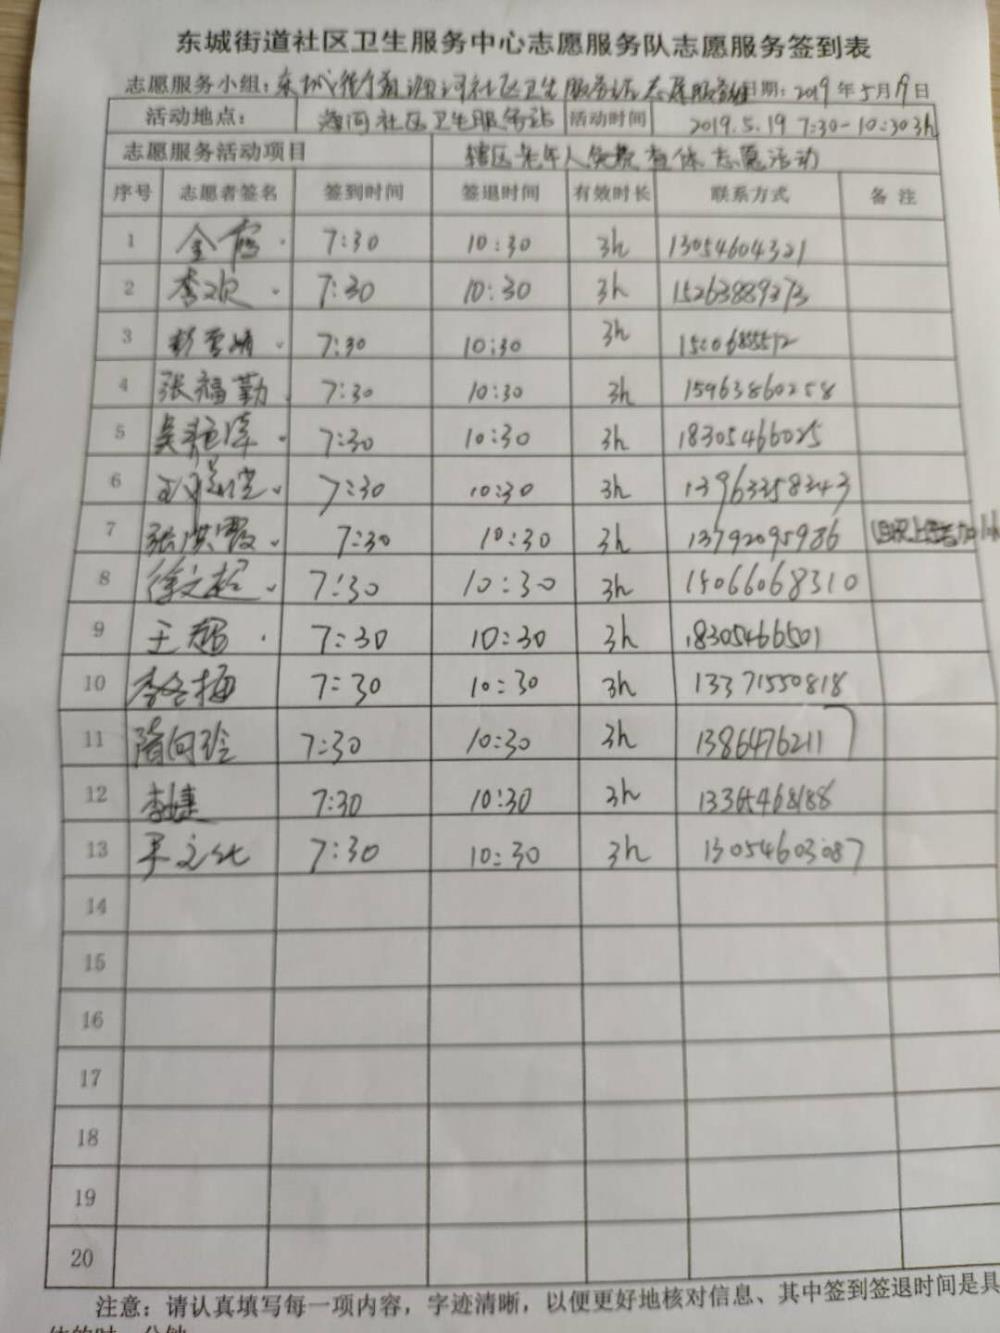 东城街道社区卫生服务中心志愿服务队志愿服务签到表
志愿服务小组：东城街道 河社区卫生服务站志愿服务组 日期：2019年5月19日
活动地点： 河社区卫生服务站 活动时间 2019.5.19 7:30-10:30 3h
志愿服务活动项目 辖区老年人免费查体志愿活动
序号 志愿者签名 签到时间 签退时间 有效时长 联系方式 备注
1 金 7:30 10:30 3h 13054604321
2 李欢 7:30 10:30 3h 15263889273
3 7:30 10:30 3h
4 张福勤 7:30 10:30 3h 15963860258
5 吴 7:30 10:30 3h 18305466025
6 7:30 10:30 3h 13963358343
7 张洪霞 7:30 10:30 3h 13792095986
8 徐文超 7:30 10:30 3h 15066068310
9 王 7:30 10:30 3h 18305466501
10 李冬梅 7:30 10:30 3h 13371550818
11 隋向玲 7:30 10:30 3h 13864762117
12 李婕 7:30 10:30 3h 13365468188
13 文 7:30 10:30 3h 13054603087
14
15
16
17
18
19
20
注意：请认真填写每一项内容，字迹清晰，以便更好地核对信息、其中签到签退时间是具